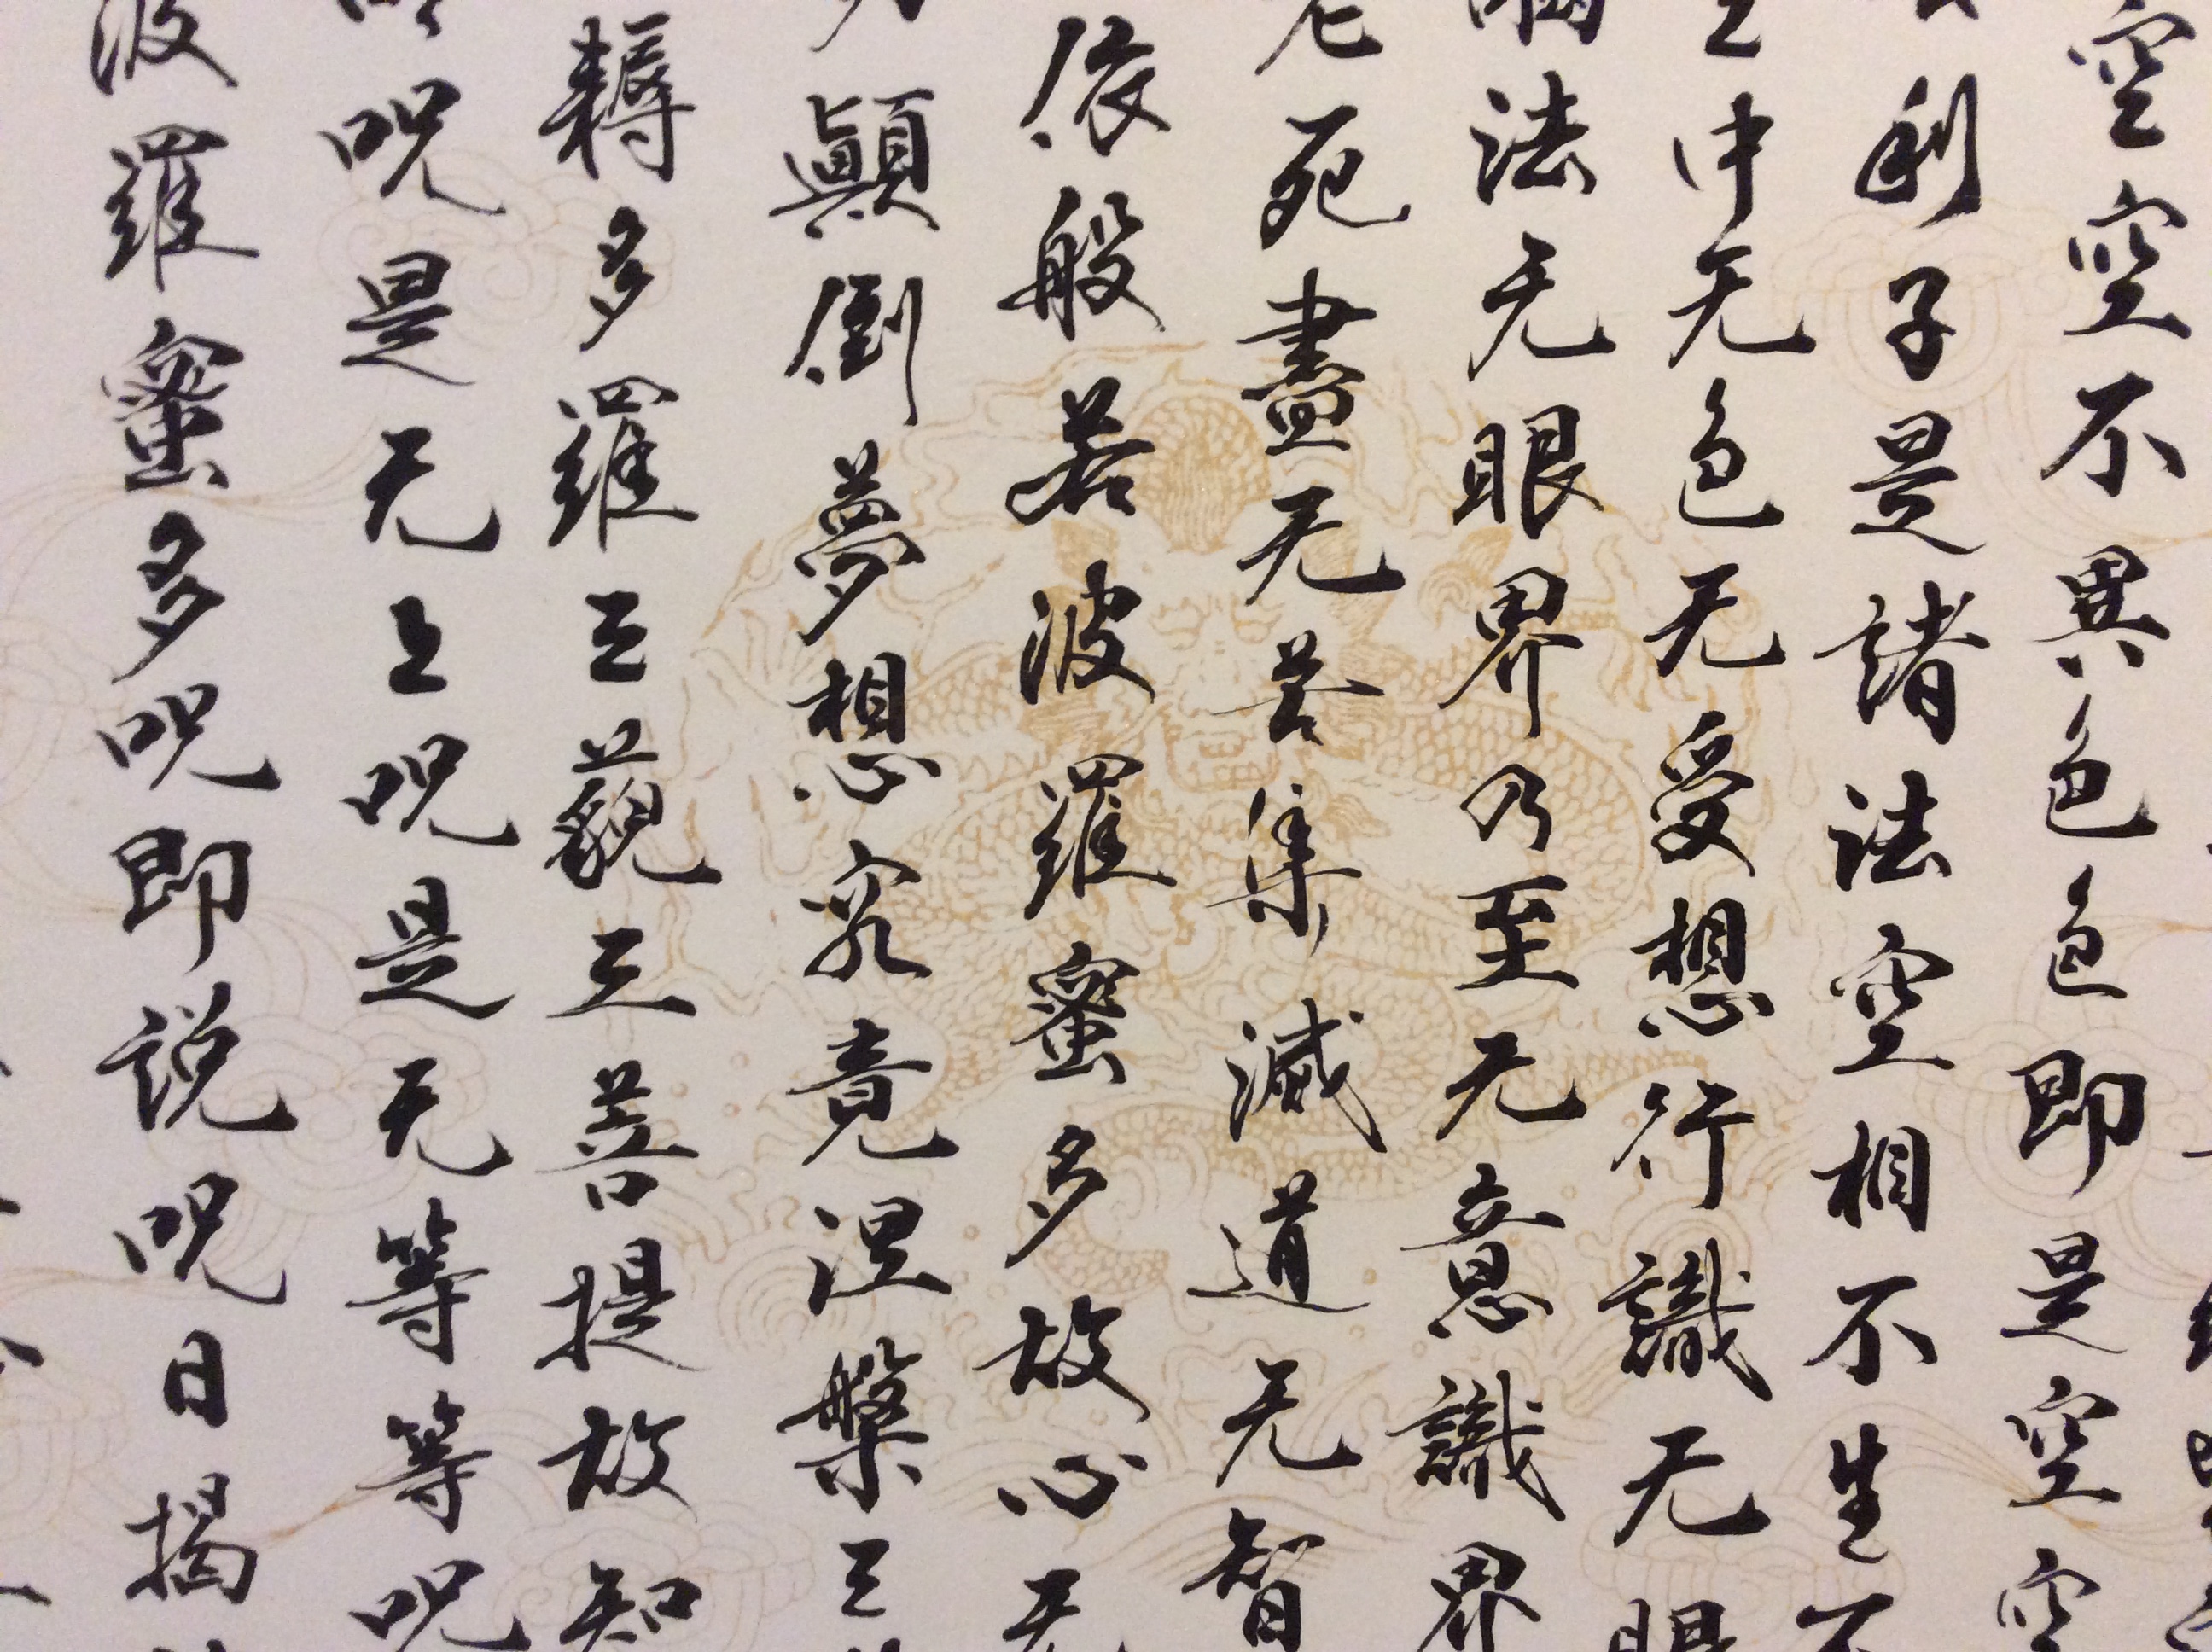 空空不異色色即是空空
利子是諸法空相不生不
中无色无受想行識无眼
法无眼界乃至无意識界
老死盡无苦集滅道无智
依般若波羅蜜多故心无
顛倒夢想究竟涅槃三
耨多羅三藐三菩提故知
呪是无上呪是无等等呪
波羅蜜多呪即说呪曰揭